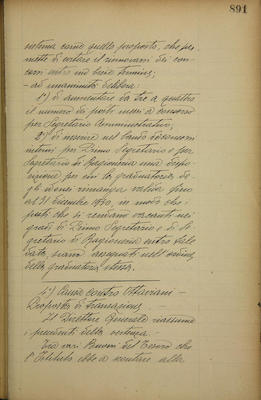 891
sistema come quello proposto, che per-
mette di evitare il rinnovarsi dei con-
corsi entro sì breve termine;
- ad unanimità delibera
1°) di aumentare da tre a quattro
il numero dei posti messi a concorso
per Segretario Amministrativo;
2°) di inserire nel bando dei concorsi
interni per Primo Segretario e per
Segretario di Ragioneria una dispo-
sizione per cui la graduatoria de-
gli idonei rimanga valida fino
al 31 dicembre 1930, in modo che i
posti che si rendano vacanti nei
gradi di Primo Segretario e di Se-
gretario di Ragioneria entro tale
data, siano assegnati nell'ordine
della graduatoria stessa.
4°) Causa contro Ottaviani -
Proposta di transazione.
Il Direttore Generale riassume
i precedenti della vertenza.
Tra vari Buoni del Tesoro che
l'Istituto ebbe a scontare alla